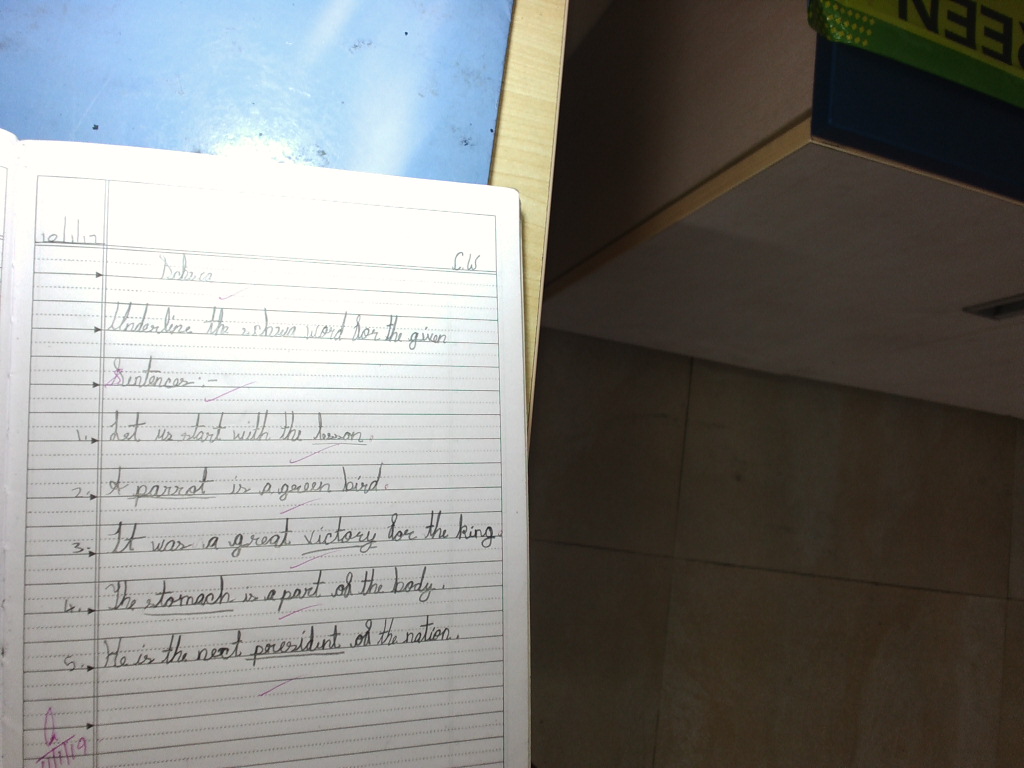 REEN
10/1/17
C.W
Underline the schwa word for the given
Sentences:-
1. Let us start with the lesson.
2. A parrot is a green bird.
3. It was a great victory for the king.
4. The stomach is a part of the body.
5. He is the next president of the nation.